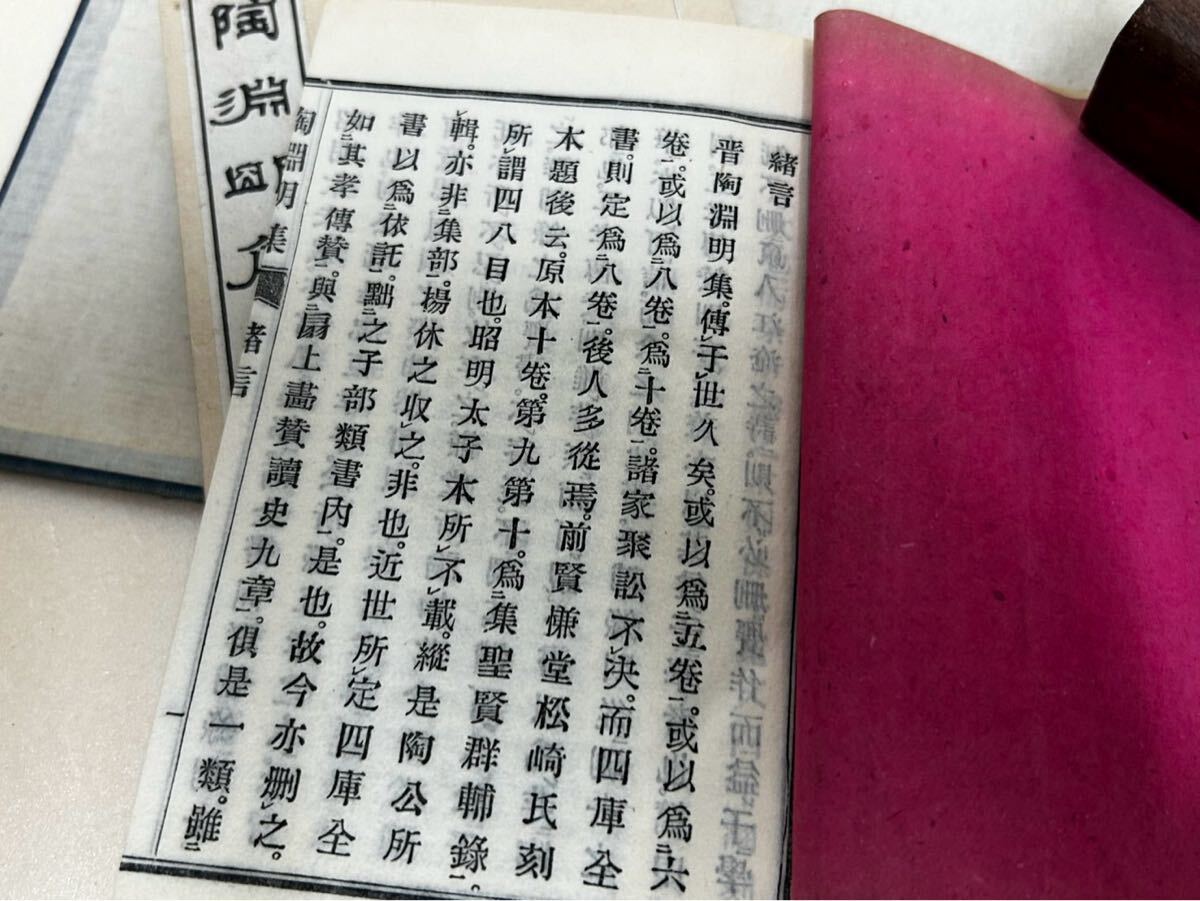 緒言
晋陶淵明集。傳レ于レ世久矣。或以爲二五卷一。或以爲二六
卷一。或以爲二八卷一。爲二十卷一。諸家聚訟不レ決。而四庫全
書。則定爲二八卷一。後人多從焉。前賢慊堂松崎氏刻
本題後云。原本十卷。第九第十。爲二集聖賢群輔錄一。
所レ謂四八目也。昭明太子本所レ不レ載。縱是陶公所
輯。亦非二集部一。揚休之收レ之。非也。近世所レ定四庫全
書以爲二依託一。黜二之子部類書內一。是也。故今亦刪レ之。
如二其孝傳贊一。與二扇上畫贊讀史九章一。俱是一類。雖二
陶淵明集
緒言
一
陶淵明